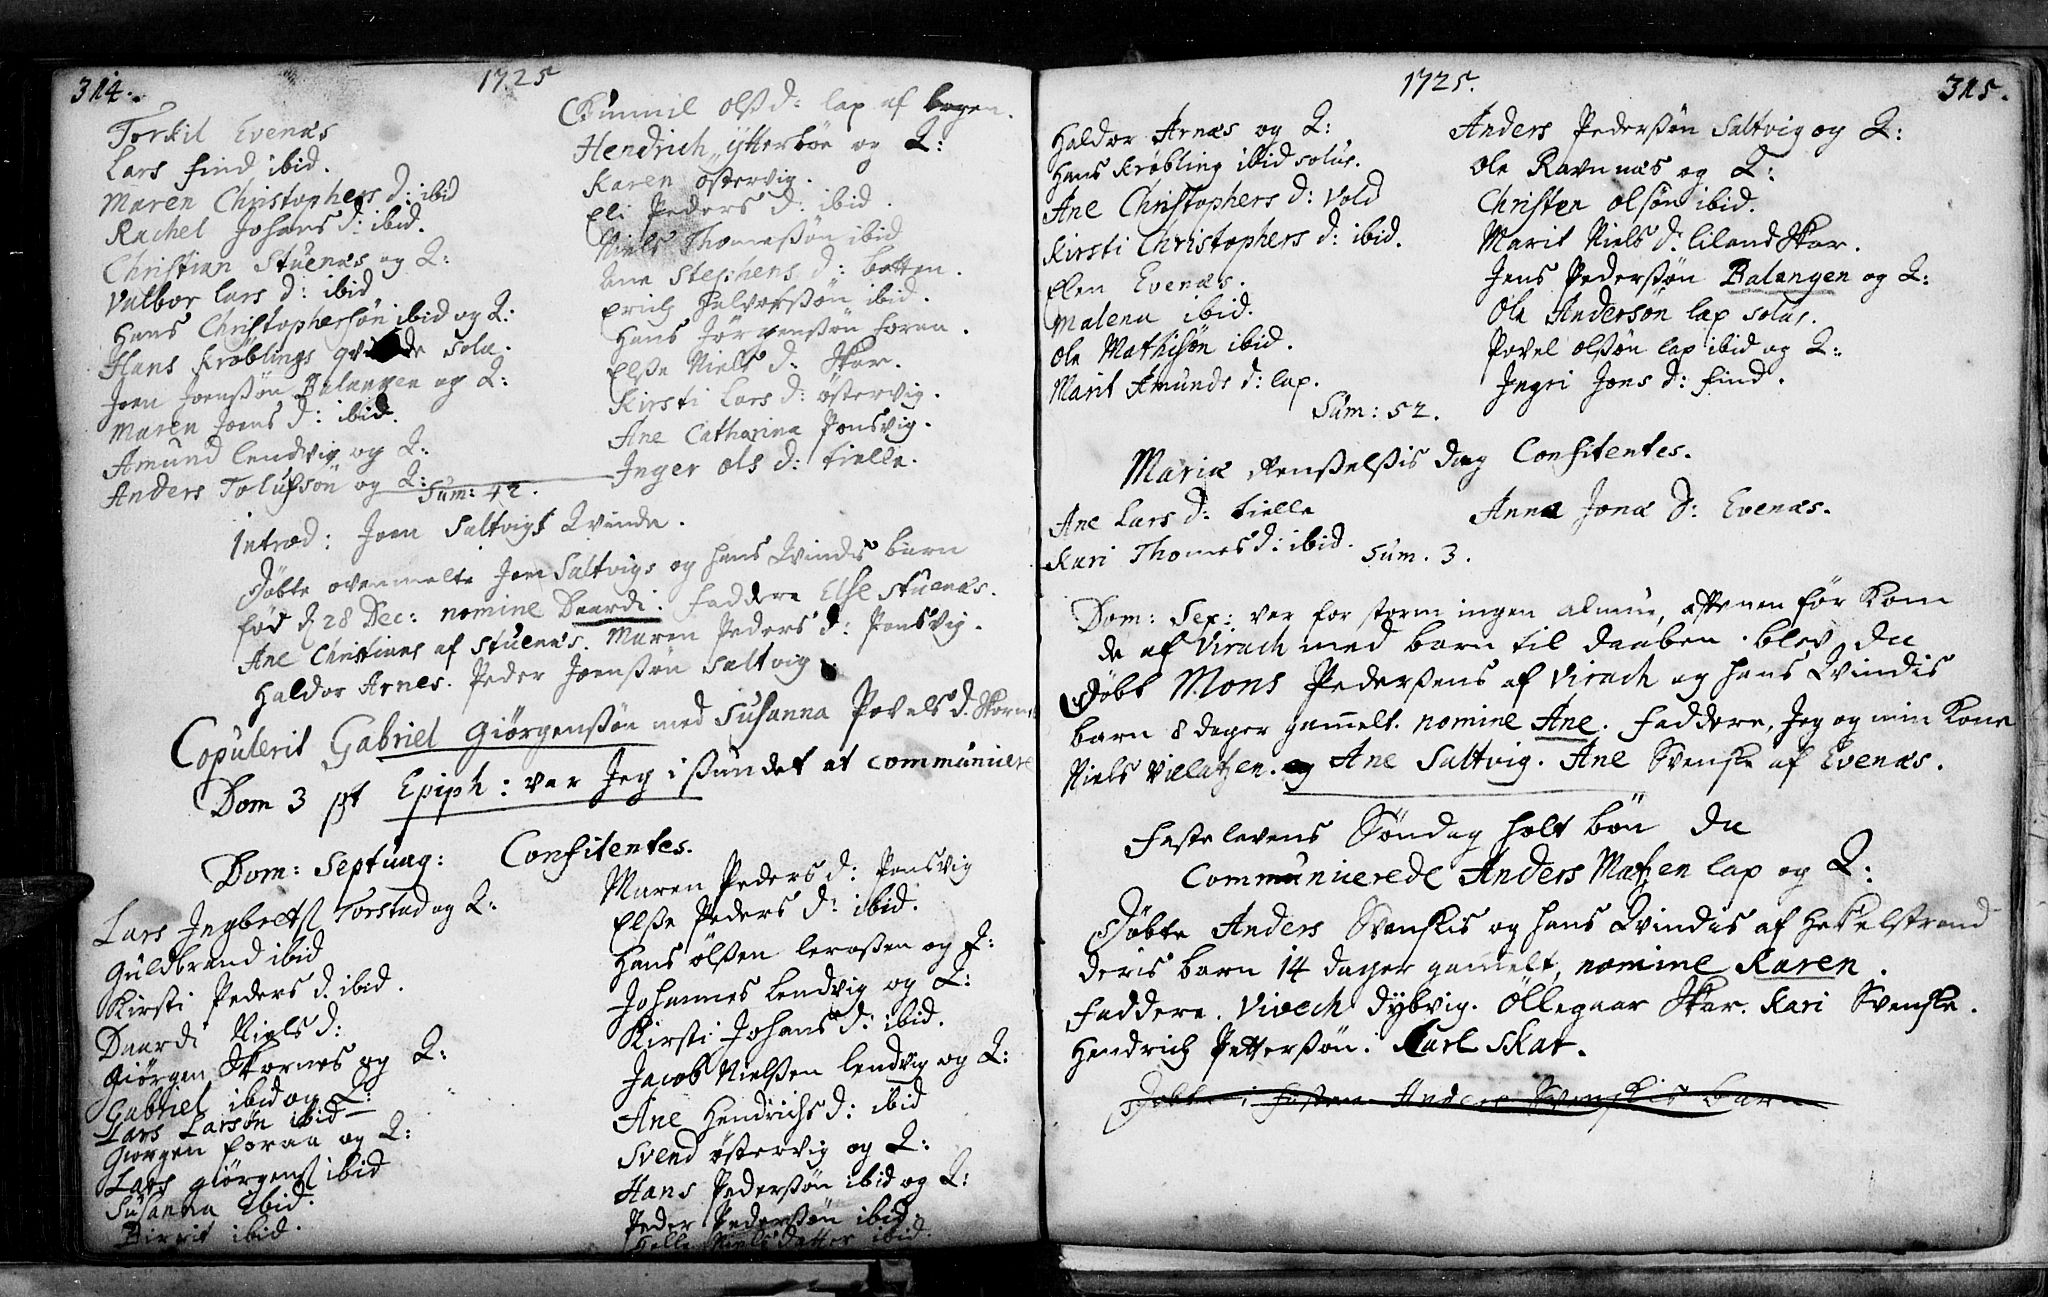 314.
1725
Torkil Evenæs
Lars find ibid.
Maren Christophers d: ibid
Rachel Johans d: ibid.
Christian Stuenæs og Q:
Valbor Lars d: ibid
Hans Christophersøn ibid og Q:
Hans Krøblings qvinde sola.
Joen Joenssøn Balangen og Q:
Maren Joens d: ibid.
Amund Lendvig og Q:
Anders Tolufsøn og Q:
Sum: 42.
Gunnil Olsd: lap af bogen.
Hendrich Ytterbøe og Q:
Karen Østervig.
Eli Peders d: ibid.
Niels Thomessøn ibid
Ane Stephens d: botten.
Erich Halvorssøn ibid.
Hans Jørgenssøn Foraa.
Elsse Niels d: Skar.
Kirsti Lars d: østervig.
Ane Catharina Ponsvig.
Inger Ols d: tielle.
Introd: Joen Saltvigs Qvinde.
Døbte ovenmelte Joen Saltvigs og hans Qvindis barn
fød d. 28 Dec: nomine Daardi. Faddere Else Stuenæs.
Ane Christians af Stuenæs. Maren Peders d: Ponsvig.
Haldor Arnes. Peder Joenssøn Saltvig.
Copulerit Gabriel Giørgenssøn med Susanna Povels d. Skorn
Dom 3 pt Epiph: var Jeg i ssundet at communicere
Dom: Septuag: Confitentes.
Lars Ingbretss Torstad og Q:
Guldbrand ibid
Kirsti Peders d. ibid.
Daardi Niels d:
Giørgen Skornes og Q:
Gabriel ibid og Q:
Lars Larsøn ibid
Giørgen Foraa og Q:
Lars Giørgenss ibid
Susanna ibid.
Birrit ibid.
Maren Peders d: Ponsvig
Elsse Peders d: ibid.
Hans Olssen Lerossen og Q:
Johannes Lendvig og Q:
Kirsti Johans d: ibid.
Jacob Nielssen Lendvig og Q:
Ane Hendrichs d: ibid
Svend østervig og Q:
Hans Pederssøn ibid og Q:
Peder Pederssøn ibid.
Helle Niels datter ibid.
1725.
315.
Haldor Arnæs og Q:
Hans Krøbling ibid solus.
Ane Christophers d: Vold
Kirsti Christophers d: ibid.
Elen Evenæs.
Malena ibid.
Ole Mathisøn ibid.
Marit Amunds d: lap.
Sum: 52.
Anders Pederssøn Saltvig og Q:
Ole Ravnnæs og Q:
Christen Olsøn ibid.
Marit Niels d. Liland Skar.
Jens Pederssøn Balangen og Q:
Ole Andersøn lap solus.
Povel Olssøn lap ibid og Q:
Ingri Jons d: find.
Mariæ Renselsis dag Confitentes.
Ane Lars d: tielle
Kari Thomes d: ibid.
Anna Jonæ d: Evenæs.
Sum. 3.
Dom: Sex: var for storm ingen almue, afftenen før kom
de af Virach med barn til daaben. blev da
Døbt Mons Pederssens af Virach og hans Qvindis
barn 8 dager gamelt. nomine Ane. Faddere, Jeg og min Kone
Niels Vælatzen. og Ane Saltvig. Ane Svenske af Evenæs.
Fastelavens Søndag holt bøn da
Communicerede Anders Matzen lap og Q:
Døbte Anders Svenskis og hans Qvindis af Hekelstrand
deris barn 14 dager gamelt, nomine Karen.
Faddere. Vivech Dybvig. Ollegaar Skar. Kari Svenske.
Hendrich Petterssøn. Karl Skar.
Døbte i fasten Anders Svenskis barn